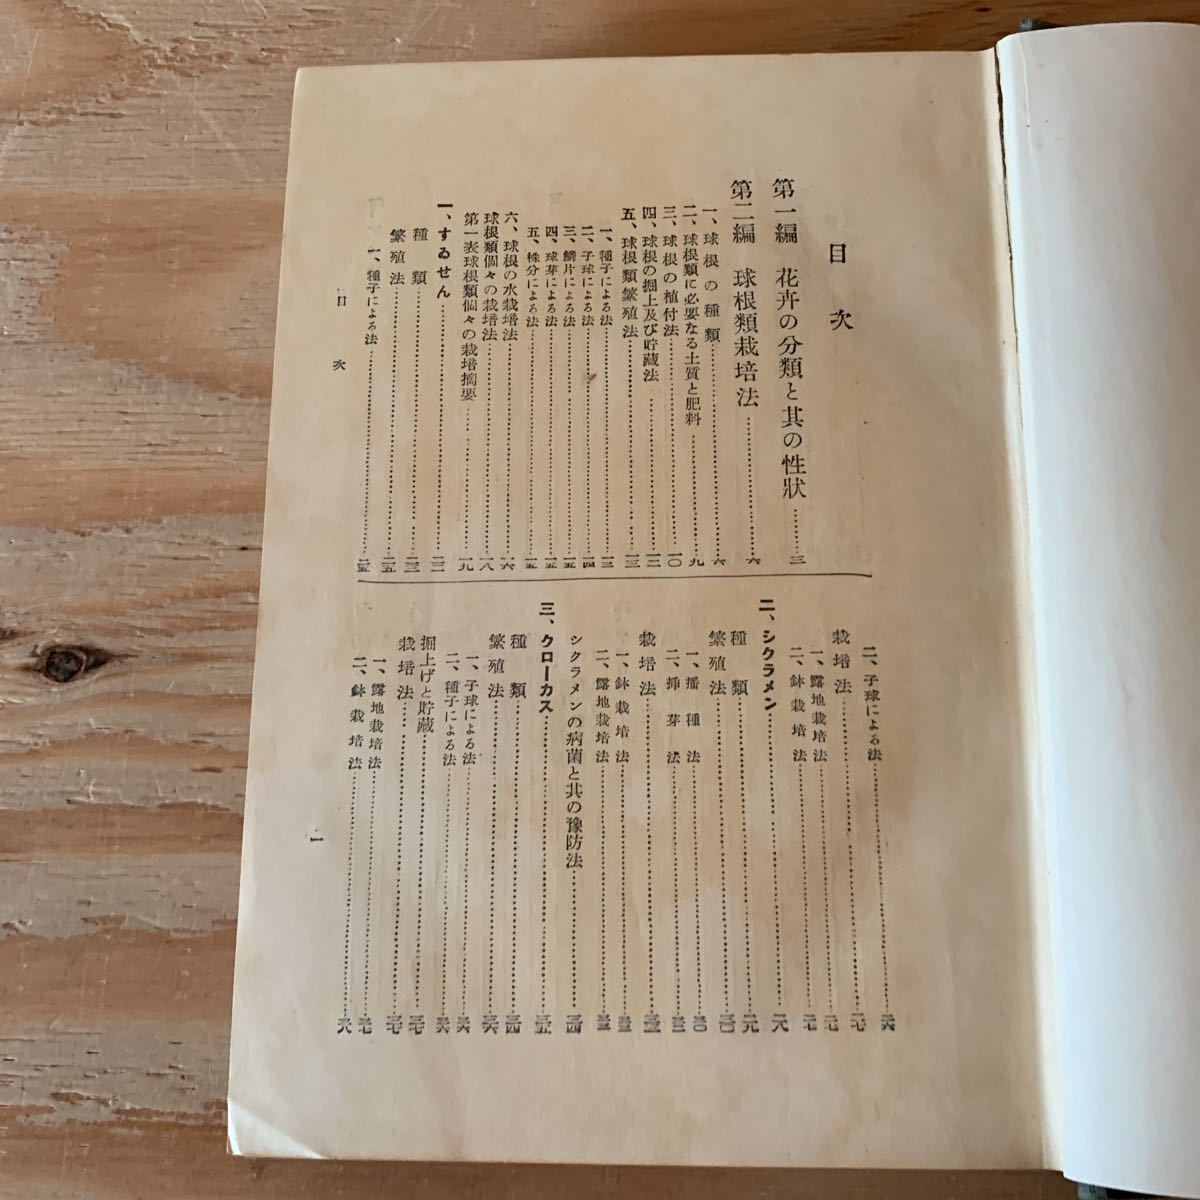 目次
第一編 花卉の分類と其の性狀……三
第二編 球根類栽培法……六
一、球根の種類……六
二、球根類に必要なる土質と肥料……九
三、球根の植付法……一〇
四、球根の掘上及び貯藏法……一二
五、球根類繁殖法……一三
一、種子による法……一三
二、子球による法……一四
三、鱗片による法……一五
四、球芽による法……一五
五、株分による法……一五
六、球根の水栽培法……一六
球根類個々の栽培法……一八
第一表球根類個々の栽培摘要……一九
一、すゐせん……二二
種類……二三
繁殖法……二五
一、種子による法……二五
二、子球による法……二六
栽培法……二七
一、露地栽培法……二七
二、鉢栽培法……二七
二、シクラメン……二八
種類……二九
繁殖法……三〇
一、播種法……三〇
二、挿芽法……三二
栽培法……三二
一、鉢栽培法……三三
二、露地栽培法……三三
シクラメンの病菌と其の豫防法……三四
三、クローカス……三五
種類……三四
繁殖法……三六
一、子球による法……三六
二、種子による法……三六
掘上げと貯藏……三七
栽培法……三七
一、露地栽培法……三七
二、鉢栽培法……三八
目次
一